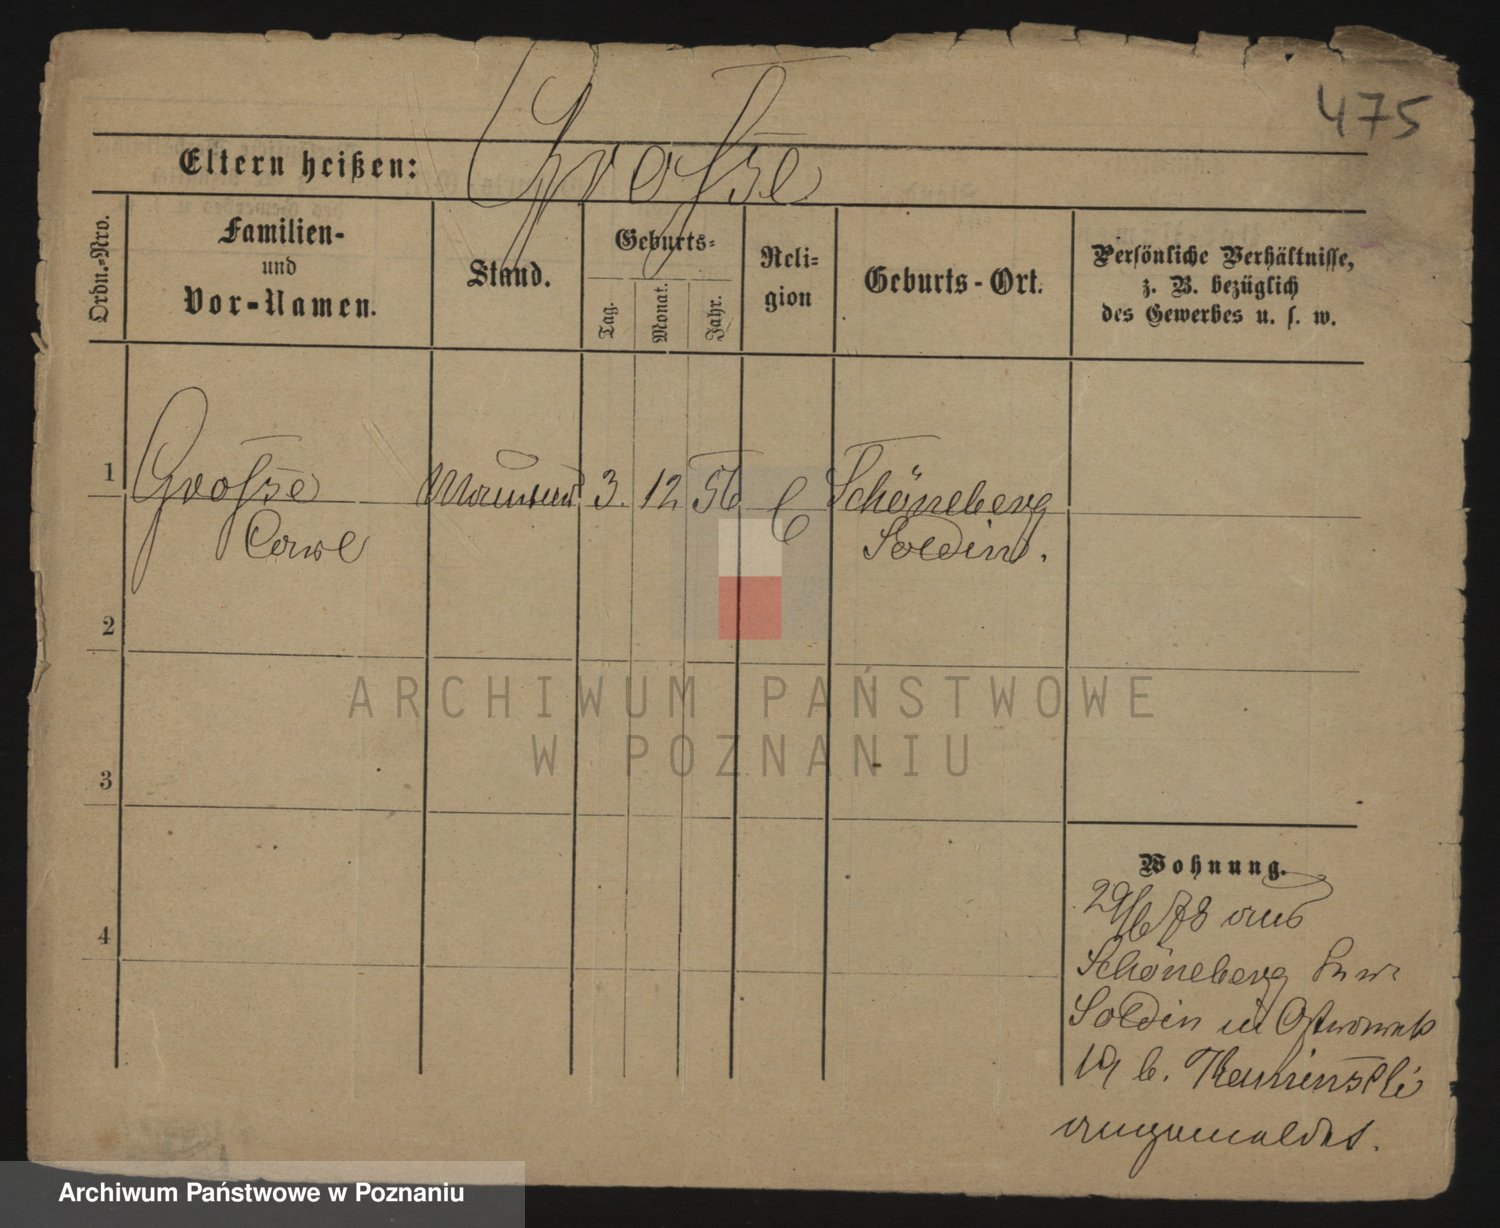 475
Grosse
Eltern heißen:
Ordn.-Nro.
Familien-
und
Vor-Namen.
Stand.
Geburts-
Tag.
Monat.
Jahr.
Reli-
gion
Geburts-Ort.
Persönliche Verhältnisse,
z. B. bezüglich
des Gewerbes u. s. w.
1 Grosse 3. 12 56 Schöneberg
Carl Soldin.
2
3
4
Wohnung.
29/6 78 aus
Schöneberg
Soldin in Ostrowek
19 b.
angemeldet.
ARCHIWUM PAŃSTWOWE
W POZNANIU
Archiwum Państwowe w Poznaniu